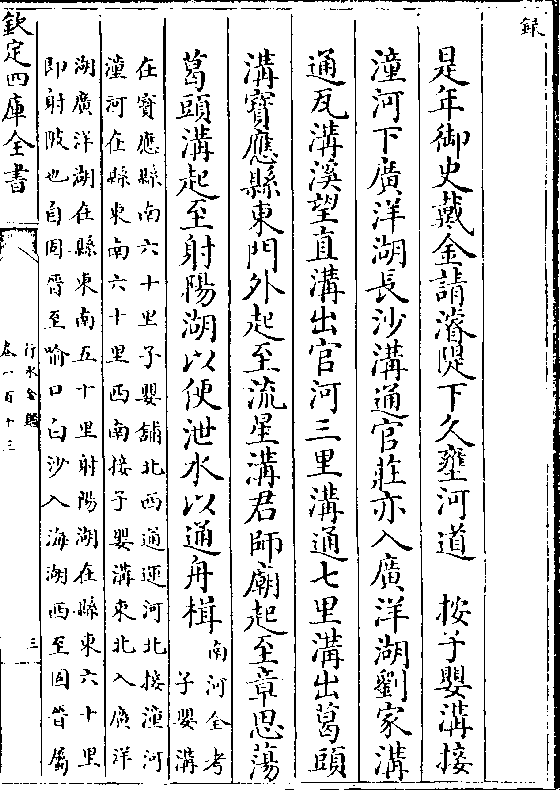 録
是年御史戴金請濬隄下久壅河道　按子嬰溝接
潼河下廣洋湖長沙溝通官莊亦入廣洋湖劉家溝
通瓦溝溪望直溝出官河三里溝通七里溝出葛頭
溝寳應縣東門外起至流星溝君師廟起至章思蕩
葛頭溝起至射陽湖以便泄水以通舟楫南河全考
子嬰溝
在寳應縣南六十里子嬰舖北西通運河北接潼河
潼河在縣東南六十里西南接子嬰溝東北入廣洋
湖廣洋湖在縣東南五十里射陽湖在縣東六十里
即射陂也自固晉至喻口白沙入海湖西至固晉屬
欽定四庫全書
行水金鑑
卷一百十三
三